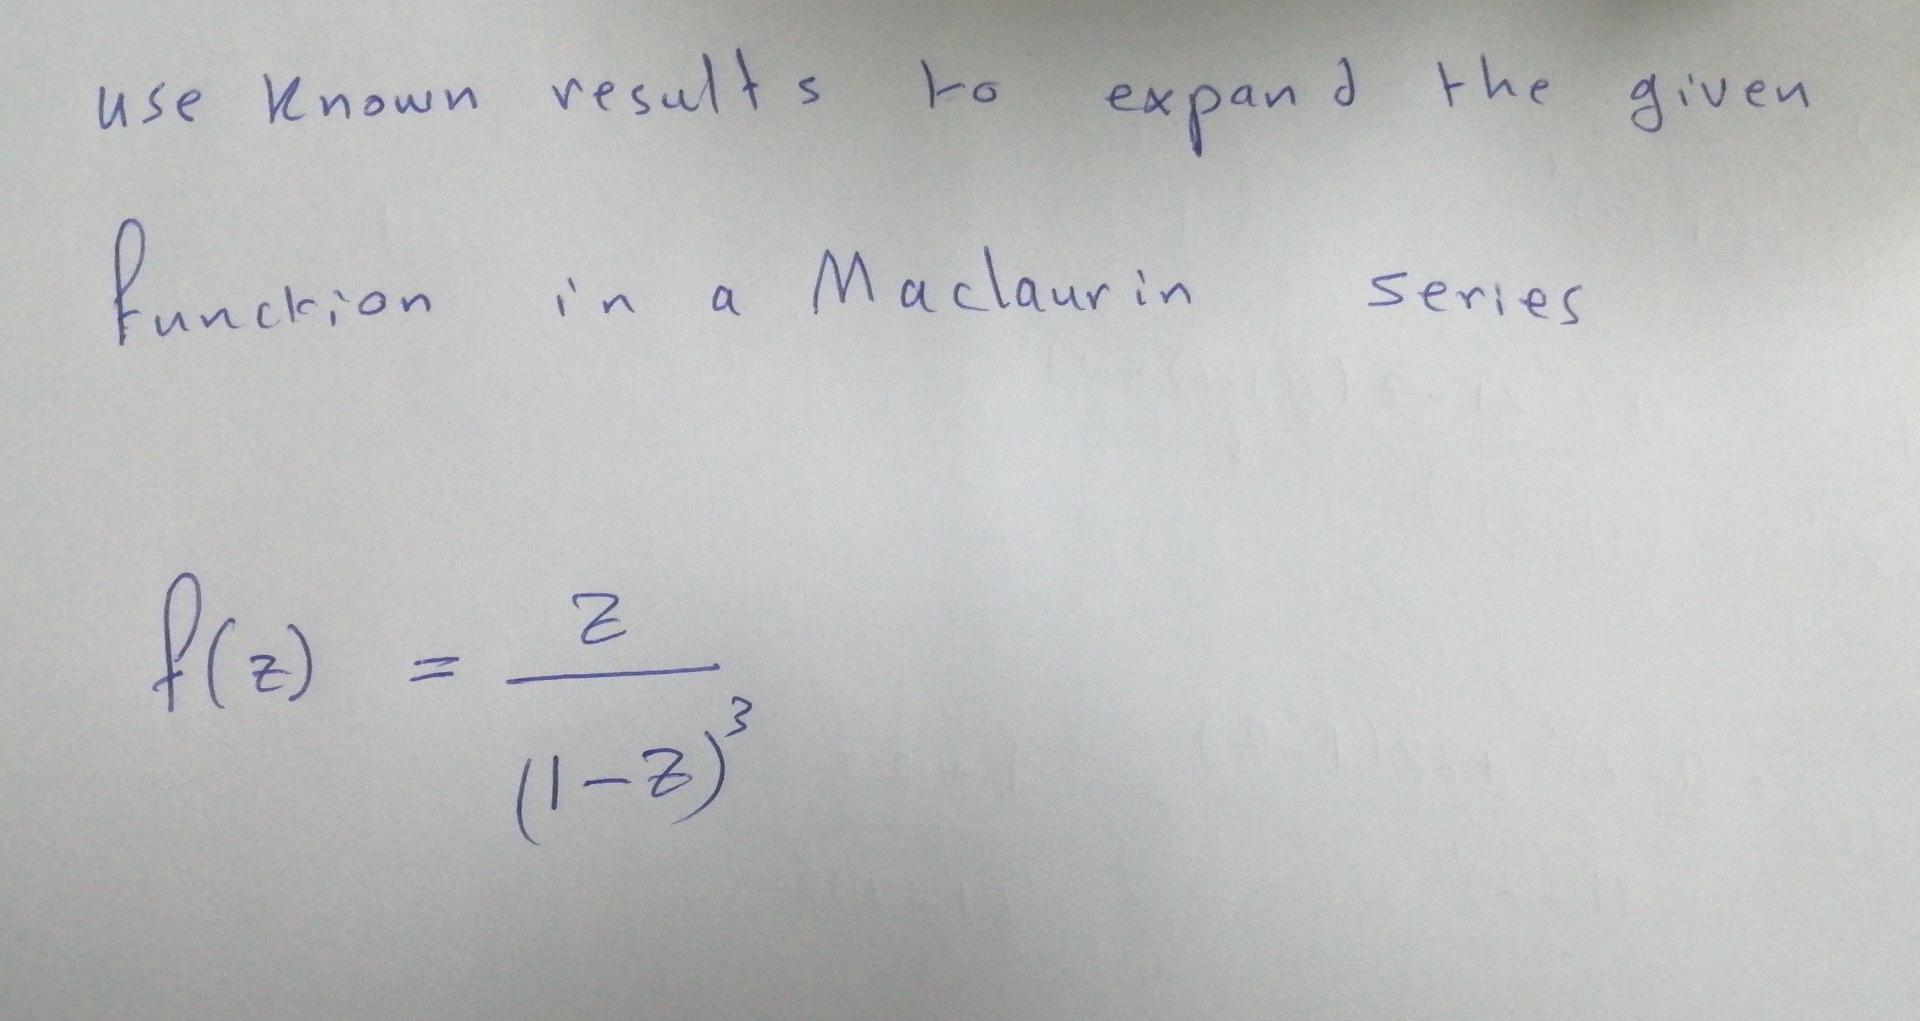 use known results to expand the given
function in a Maclaurin series
f(z) = z / (1-z)³